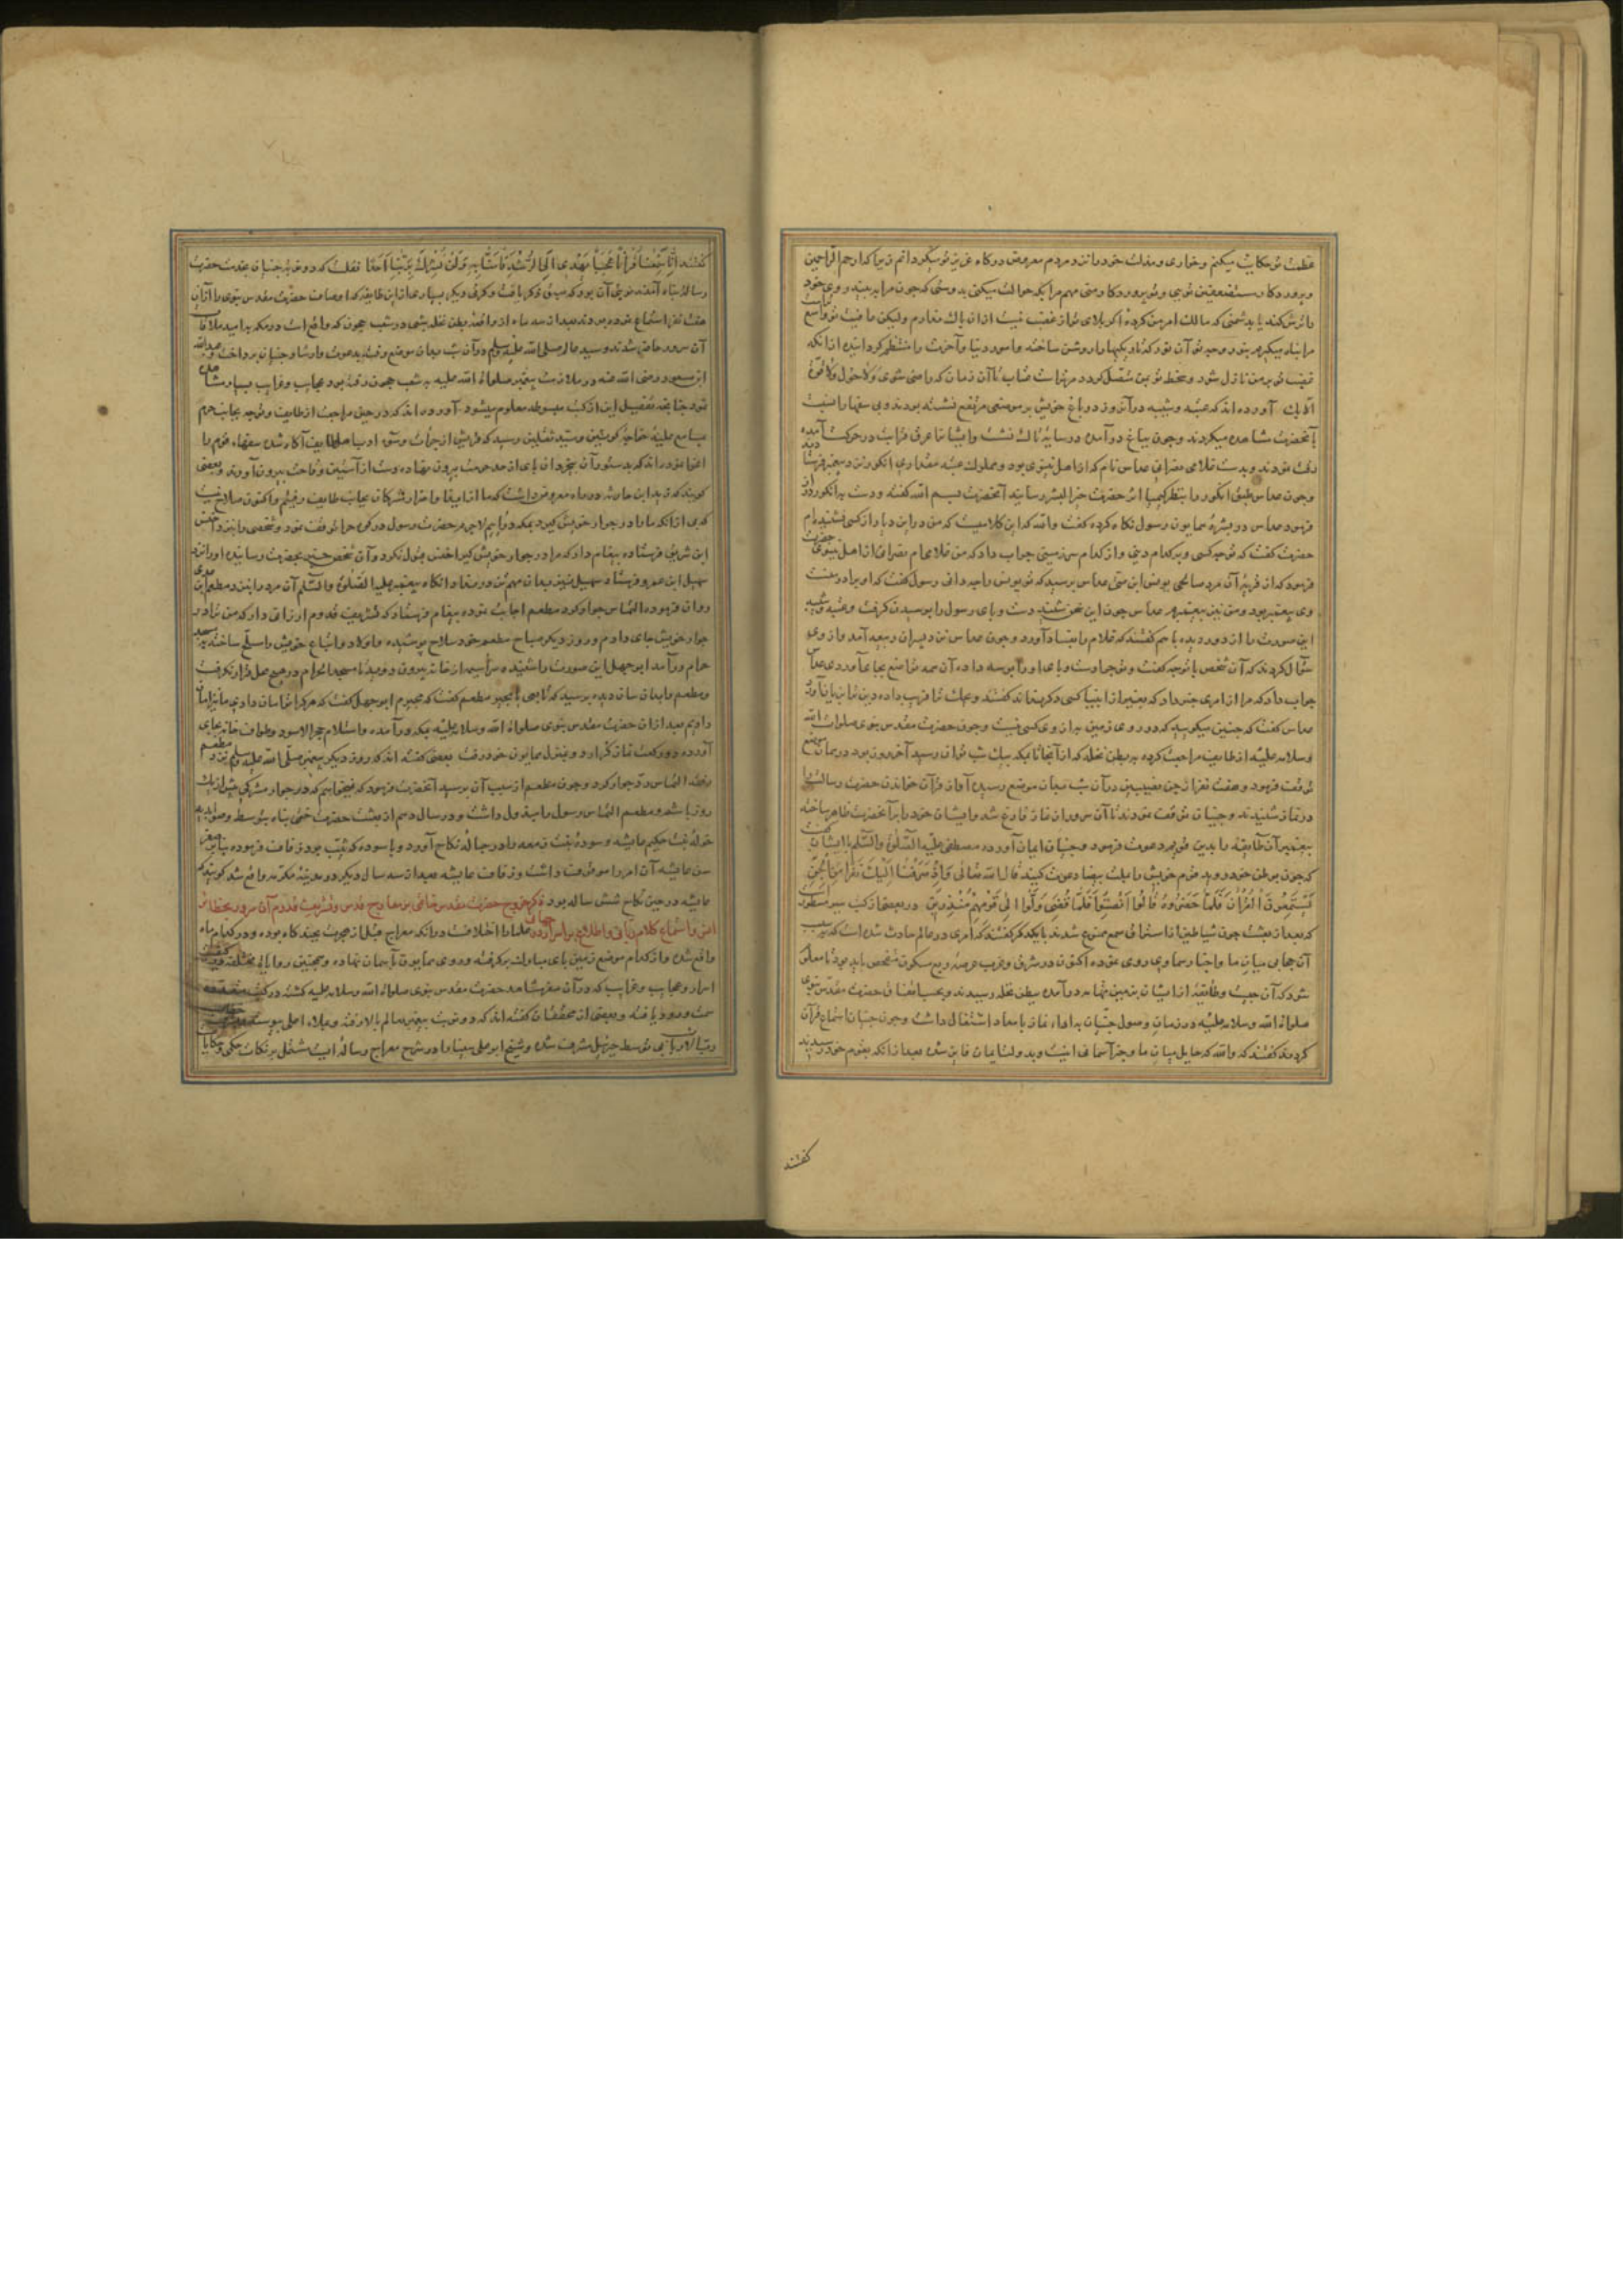 عظمت تو شکایت میکنم و خواری و مذلت خود را نزد مردم معروض درگاه عزت تو میگردانم زیرا که ارحم الراحمین
و پروردگار مستضعفین تویی و تو پروردگار منی مهم مرا بکه حوالت میکنی بدوستی که چون مرا به بیند روی خود
را ترش کند یا بدشمنی که مالک امر من کرده اگر بلای تو از غضب نیست ازان باک ندارم ولیکن عافیت تو واسع
مرا پناه میگیرم بنور وجه تو آن نور که تاریکیها را روشن ساخته و امور دنیا و آخرت را منتظم گردانیده ازانکه
غضب تو بر من نازل شود و سخط تو بمن متصل گردد مر تراست عتاب تا آن زمان که راضی شوی ولا حول ولا قوة
الا بک آورده اند که عتبه و شیبه دران روز در باغ خویش بر موضعی مرتفع نشسته بودند و بی سفها را نسبت
بآنحضرت مشاهده میکردند و چون بباغ در آمده در سایه تاک نشست ایشانرا عرق قرابت در حرکت آمده
رقت نمودند و بدست غلامی نصرانی عداس نام که از اهل نینوی بود و مملوک عتبه مقداری انگور نزد پیغمبر فرستادند
و چون عداس طبق انگور را بنظر کیمیا اثر حضرت خیر البشر رسانید آنحضرت بسم الله گفته و دست به انگور دراز
فرمود عداس در بشره همایون رسول نگاه کرده گفت والله که این کلامیست که من در این دیار از کسی نشنیده ام
حضرت گفت که تو چه کسی و بر کدام دینی و از کدام سرزمینی جواب داد که من غلامی ام نصرانی از اهل نینوی حضرت
فرمود که از قریه آن مرد صالحی یونس ابن متی عداس پرسید که تو یونس را چه دانی رسول گفت که او برادر منست
وی پیغمبر بود و من نیز پیغمبرم عداس چون این سخن شنید دست و پای رسول را بوسیدن گرفت و عتبه و شیبه
این صورت را از دور دیده با هم گفتند که غلام را بفساد آورد و چون عداس نزد پسران ربیعه آمد از وی
سؤال کردند که آن شخص با تو چه گفت و تو چرا دست و پای او را بوسه دادی
جواب داد که مرا از امری خبر داد که بغیر از انبیا کسی
عداس گفت که چنین مگویید که در روی زمین به از وی کسی نیست و چون حضرت مقدس نبوی صلوات الله
و سلامه علیه از طایف مراجعت کرده به بطن نخله که از آنجا تا مکه یک شب توان رسید آخر روز بود دران موضع
توقف فرمود و هفت نفر از جن نصیبین در آن شب بدان موضع رسیده آواز قرآن خواندن حضرت رسالت را
در نماز شنیدند و جنیان توقف نمودند تا آن سرور از نماز فارغ شد و ایشان خود را بر آنحضرت ظاهر ساخته
پیغمبر آن طایفه را بدین قویم دعوت فرمود و جنیان ایمان آورده مصطفی علیه الصلوة والسلام با ایشان گفت
که چون بوطن خود روید قوم خویش را بملت بیضا دعوت کنید قال الله تعالی وَاِذْ صَرَفْنَا اِلَيْكَ نَفَراً مِنَ الْجِنِّ
يَسْتَمِعُونَ الْقُرْآنَ فَلَمَّا حَضَرُوهُ قَالُوا اَنْصِتُوا فَلَمَّا قُضِيَ وَلَّوْا اِلَى قَوْمِهِمْ مُنْذِرِينَ در بعضی از کتب سیر مسطور است
که بعد از بعثت چون شیاطین از استراق سمع ممنوع شدند با یکدیگر گفتند که امری در عالم حادث شده است که
آن حجابی میان ما و اخبار سماوی روی نموده اکنون در شرق و غرب عرصه ربع مسکون تفحص باید نمود تا معلوم
شود که آن چیست و طایفه از ایشان بزمین تهامه در آمده ببطن نخله رسیدند و بحسب اتفاق حضرت مقدس نبوی
صلوات الله و سلامه علیه در زمان وصول جنیان به اداء نماز بامداد اشتغال داشت و چون جنیان استماع قرآن
کردند گفتند که والله که حایل میان ما و خبر آسمانی اینست و بدولت ایمان فایز شده بعد ازانکه بقوم خود رسیدند
گفتند
گفتند اِنَّا سَمِعْنَا قُرْآناً عَجَباً يَهْدِي اِلَى الرُّشْدِ فَآمَنَّا بِهِ وَلَنْ نُشْرِكَ بِرَبِّنَا اَحَداً نقلست که دو نوبه جنیان بخدمت حضرت
رسالت پناه آمدند نوبتی آن بود که سبق ذکر یافت و کرت دیگر بسیاری از این طایفه که اوصاف حضرت مقدس نبوی را ازان
هفت نفر استماع نموده بودند بعد از سه ماه از واقعه بطن نخله شبی در شعب حجون که واقع است در مکه به امید ملاقات
آن سرور حاضر شدند و سید عالم صلی الله علیه وسلم در آن شب بدان موضع رفته بدعوت و ارشاد جنیان پرداخت و عبدالله
ابن مسعود رضی الله عنه در ملازمت پیغمبر صلوات الله علیه به شعب حجون رفته بود عجایب و غرایب بسیار مشاهده
نمود چنانچه تفصیل این از کتب مبسوطه معلوم میشود آورده اند که در حین مراجعت از طایف و توجه بجانب حرم
بمسامع علیه خواجه کونین و سید ثقلین رسید که قریش از
اغوا نموده اند که بدستور آن بیخردان پای از حد حرمت بیرون نهاده دست از آستین وقاحت بیرون آورند و بعضی
گویند که زید ابن حارثه در راه معروض داشت که ما از ایذا و اضرار مشرکان بجانب طایف رفتیم و اکنون صلاح نیست
که بی ازانکه ما را در جوار خویش گیرد بمکه درآییم لاجرم حضرت رسول در کوه حرا توقف نمود و شخصی را نزد اخنس
ابن شریق فرستاده پیغام داد که مرا در جوار خویش گیر اخنس قبول نکرد و آن شخص خبر بحضرت رسانیده او را نزد
سهیل ابن عمرو فرستاد و سهیل نیز بدان مهم تن در نداد انگاه پیغمبر علیه الصلوة والسلام آن مرد را نزد مطعم ابن عدی
روان فرموده التماس جوار کرد مطعم اجابت نموده پیغام فرستاد که تشریف قدوم ارزانی دار که من ترا در
جوار خویش جای دادم و روز دیگر صباح مطعم خود سلاح پوشیده و اولاد و اتباع خویش را مسلح ساخته به مسجد
حرام در آمد ابوجهل این صورت دانسته سراسیمه از خانه بیرون دوید تا مسجد الحرام در هیچ محل قرار نگرفت
و مطعم را بدان سان دیده پرسید که تابعی یا مجیر مطعم گفت که مجیرم ابوجهل گفت که هر کرا تو امان دادی ما نیز امان
دادیم بعد ازان حضرت مقدس نبوی صلوات الله و سلامه علیه بمکه در آمده و استلام حجر الاسود و طواف خانه بجای
آورده دو رکعت نماز گزارد و بمنزل همایون خود رفت بعضی گفته اند که روز دیگر پیغمبر صلی الله علیه وسلم نزد مطعم
رفته التماس رد جوار کرد و چون مطعم از سبب آن پرسید آنحضرت فرمود که نمیخواهم که در جوار مشرکی بیش از یک
روز باشم و مطعم التماس رسول را مبذول داشت و در سال دهم از بعثت حضرت ختمی پناه بتوسط و صوابدید
خوله بنت حکیم عایشه و سوده بنت زمعه را در حباله نکاح آورد و با سوده که ثیب بود زفاف فرموده بنابر صغر
سن عایشه آن امر را موقوف داشت و زفاف عایشه بعد از سه سال دیگر در مدینه مکرمه واقع شد گویند که
عایشه در حین نکاح شش ساله بود ذکر عروج حضرت مقدس خاتمی بر معارج قدس و تشریف قدوم آن سرور بحظایر
انس و استماع کلام ربانی و اطلاع بر اسرار علما را اختلافست درانکه معراج قبل از هجرت بچند گاه بوده و در کدام ماه
واقع شده و از کدام موضع زمین پای مبارک برگرفته و روی همایون بآسمان نهاده و همچنین روایات مختلفه در کیفیت
اسرار و عجایب و غرایب که در آن سفر مشاهد حضرت مقدس نبوی صلوات الله و سلامه علیه گشته در کتب
سمت ورود یافته و بعضی از محققان گفته اند که دو نوبت پیغمبر بعالم بالا رفته و بملاء اعلی پیوسته
بی توسط جبرئیل مشرف شده و شیخ ابو علی سینا را در شرح معراج رساله ایست مشتمل بر نکات حکمی و حکایات